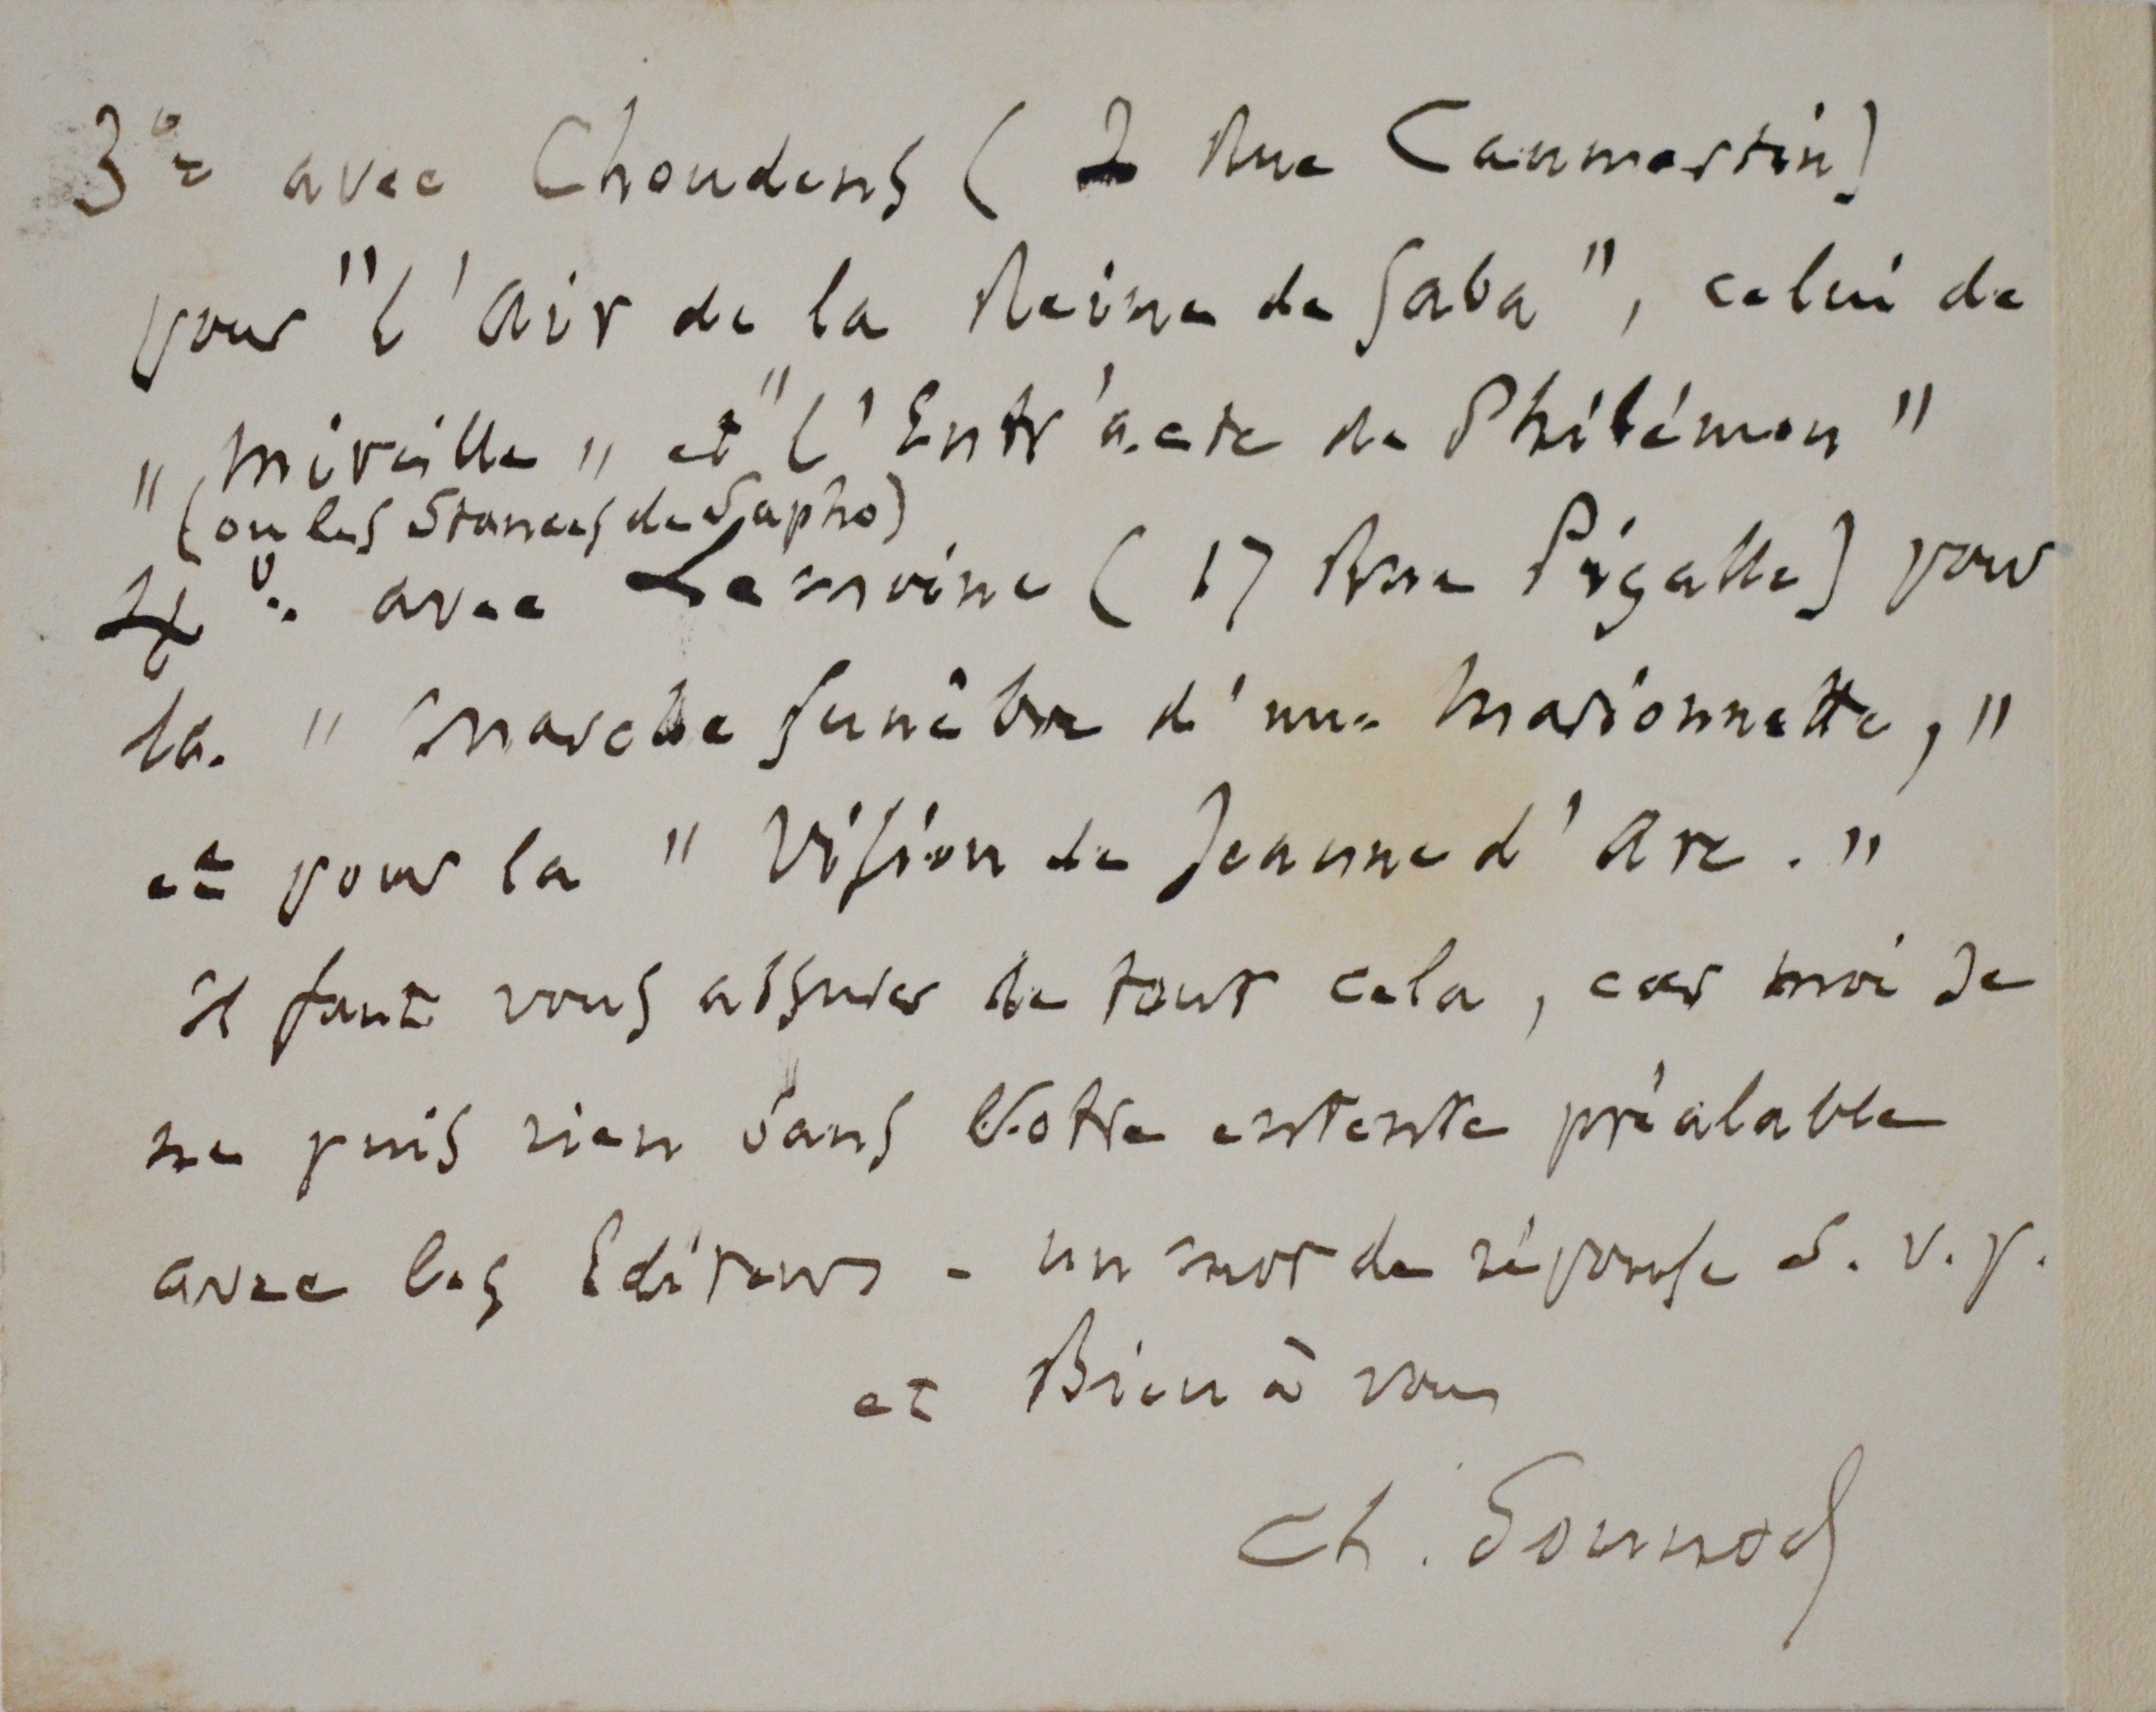 3º avec Choudens (2 Rue Caumartin)
pour "l'Air de la Reine de Saba", celui de
"Mireille" et "l'Entr'acte de Philémon"
(ou les Stances de Sapho)
4º. avec Lemoine (17 Rue Pigalle) pour
la "Marche funèbre d'une Marionnette,"
et pour la "Vision de Jeanne d'Arc."
Il faut vous assurer de tout cela, car moi je
ne puis rien sans Votre entente préalable
avec les Editeurs - un mot de réponse S. v. p.
et Bien à vous
Ch. Gounod